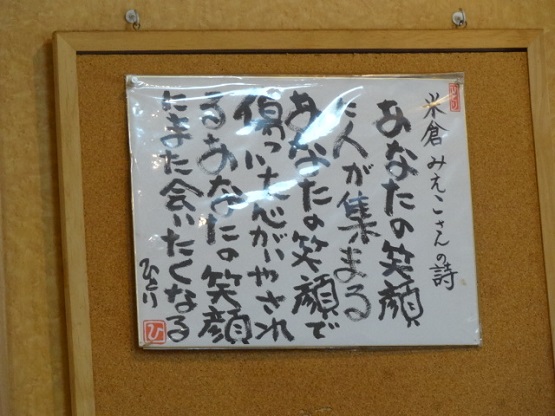 米倉みえこさんの詩
あなたの笑顔
に人が集まる
あなたの笑顔で
傷ついた心がいやされ
るあなたの笑顔
にまた会いたくなる
ひとり
ひ